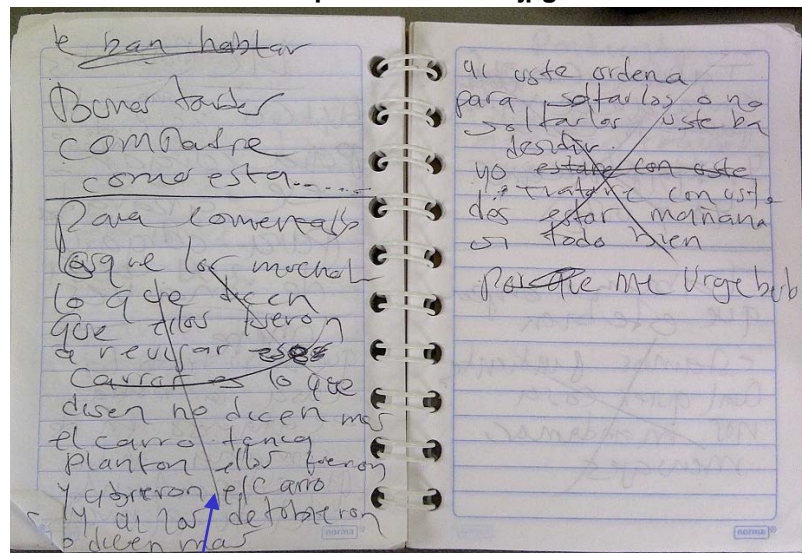 le ban hablar
Bunas tardes
comPadre
como esta......
Para comentarle
los que los muchal
lo que dicen
que ellos fueron
a revisar eses
Carrar es lo que
disen no dicen mas
el carro tenia
Planton ellos fueron
y abrieron el carro
y ai los detobieron
o dicen mas
norma
ai uste ordena
para soltarlos o no
soltarlos uste ba
desidir.
yo estare con uste
tratare con uste
dos estar mañana
si todo bien
Por que me Urge
norma